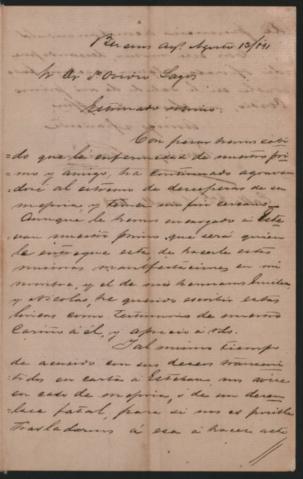 Buenos Ays Agosto 13/91
Sr Dr Dn Osvaldo Lagos
Estimado
Con pesar hemos sabi-
do que la enfermedad de nuestro pri
mo y amigo, ha continuado agravan
dose al estremo de desesperar de su
mejoria y temer un fin cercano.
Aunque le hemos encargado á Este
van nuestro primo, que será quien
le entregue esta, de hacerle estas
mismas manifestaciones en mi
nombre, y el de mis hermanos Emilio
y Nicolas, he querido escribir estas
lineas como testimonio de nuestro
Cariño á él, y aprecio á Vd.
I al mismo tiempo
de acuerdo con sus deseos trasmi
tidos en carta á Esteban, nos avise
en caso de mejoria, ó de un desen
lace fatal, para si nos es posible
trasladarnos á esa á hacer acto